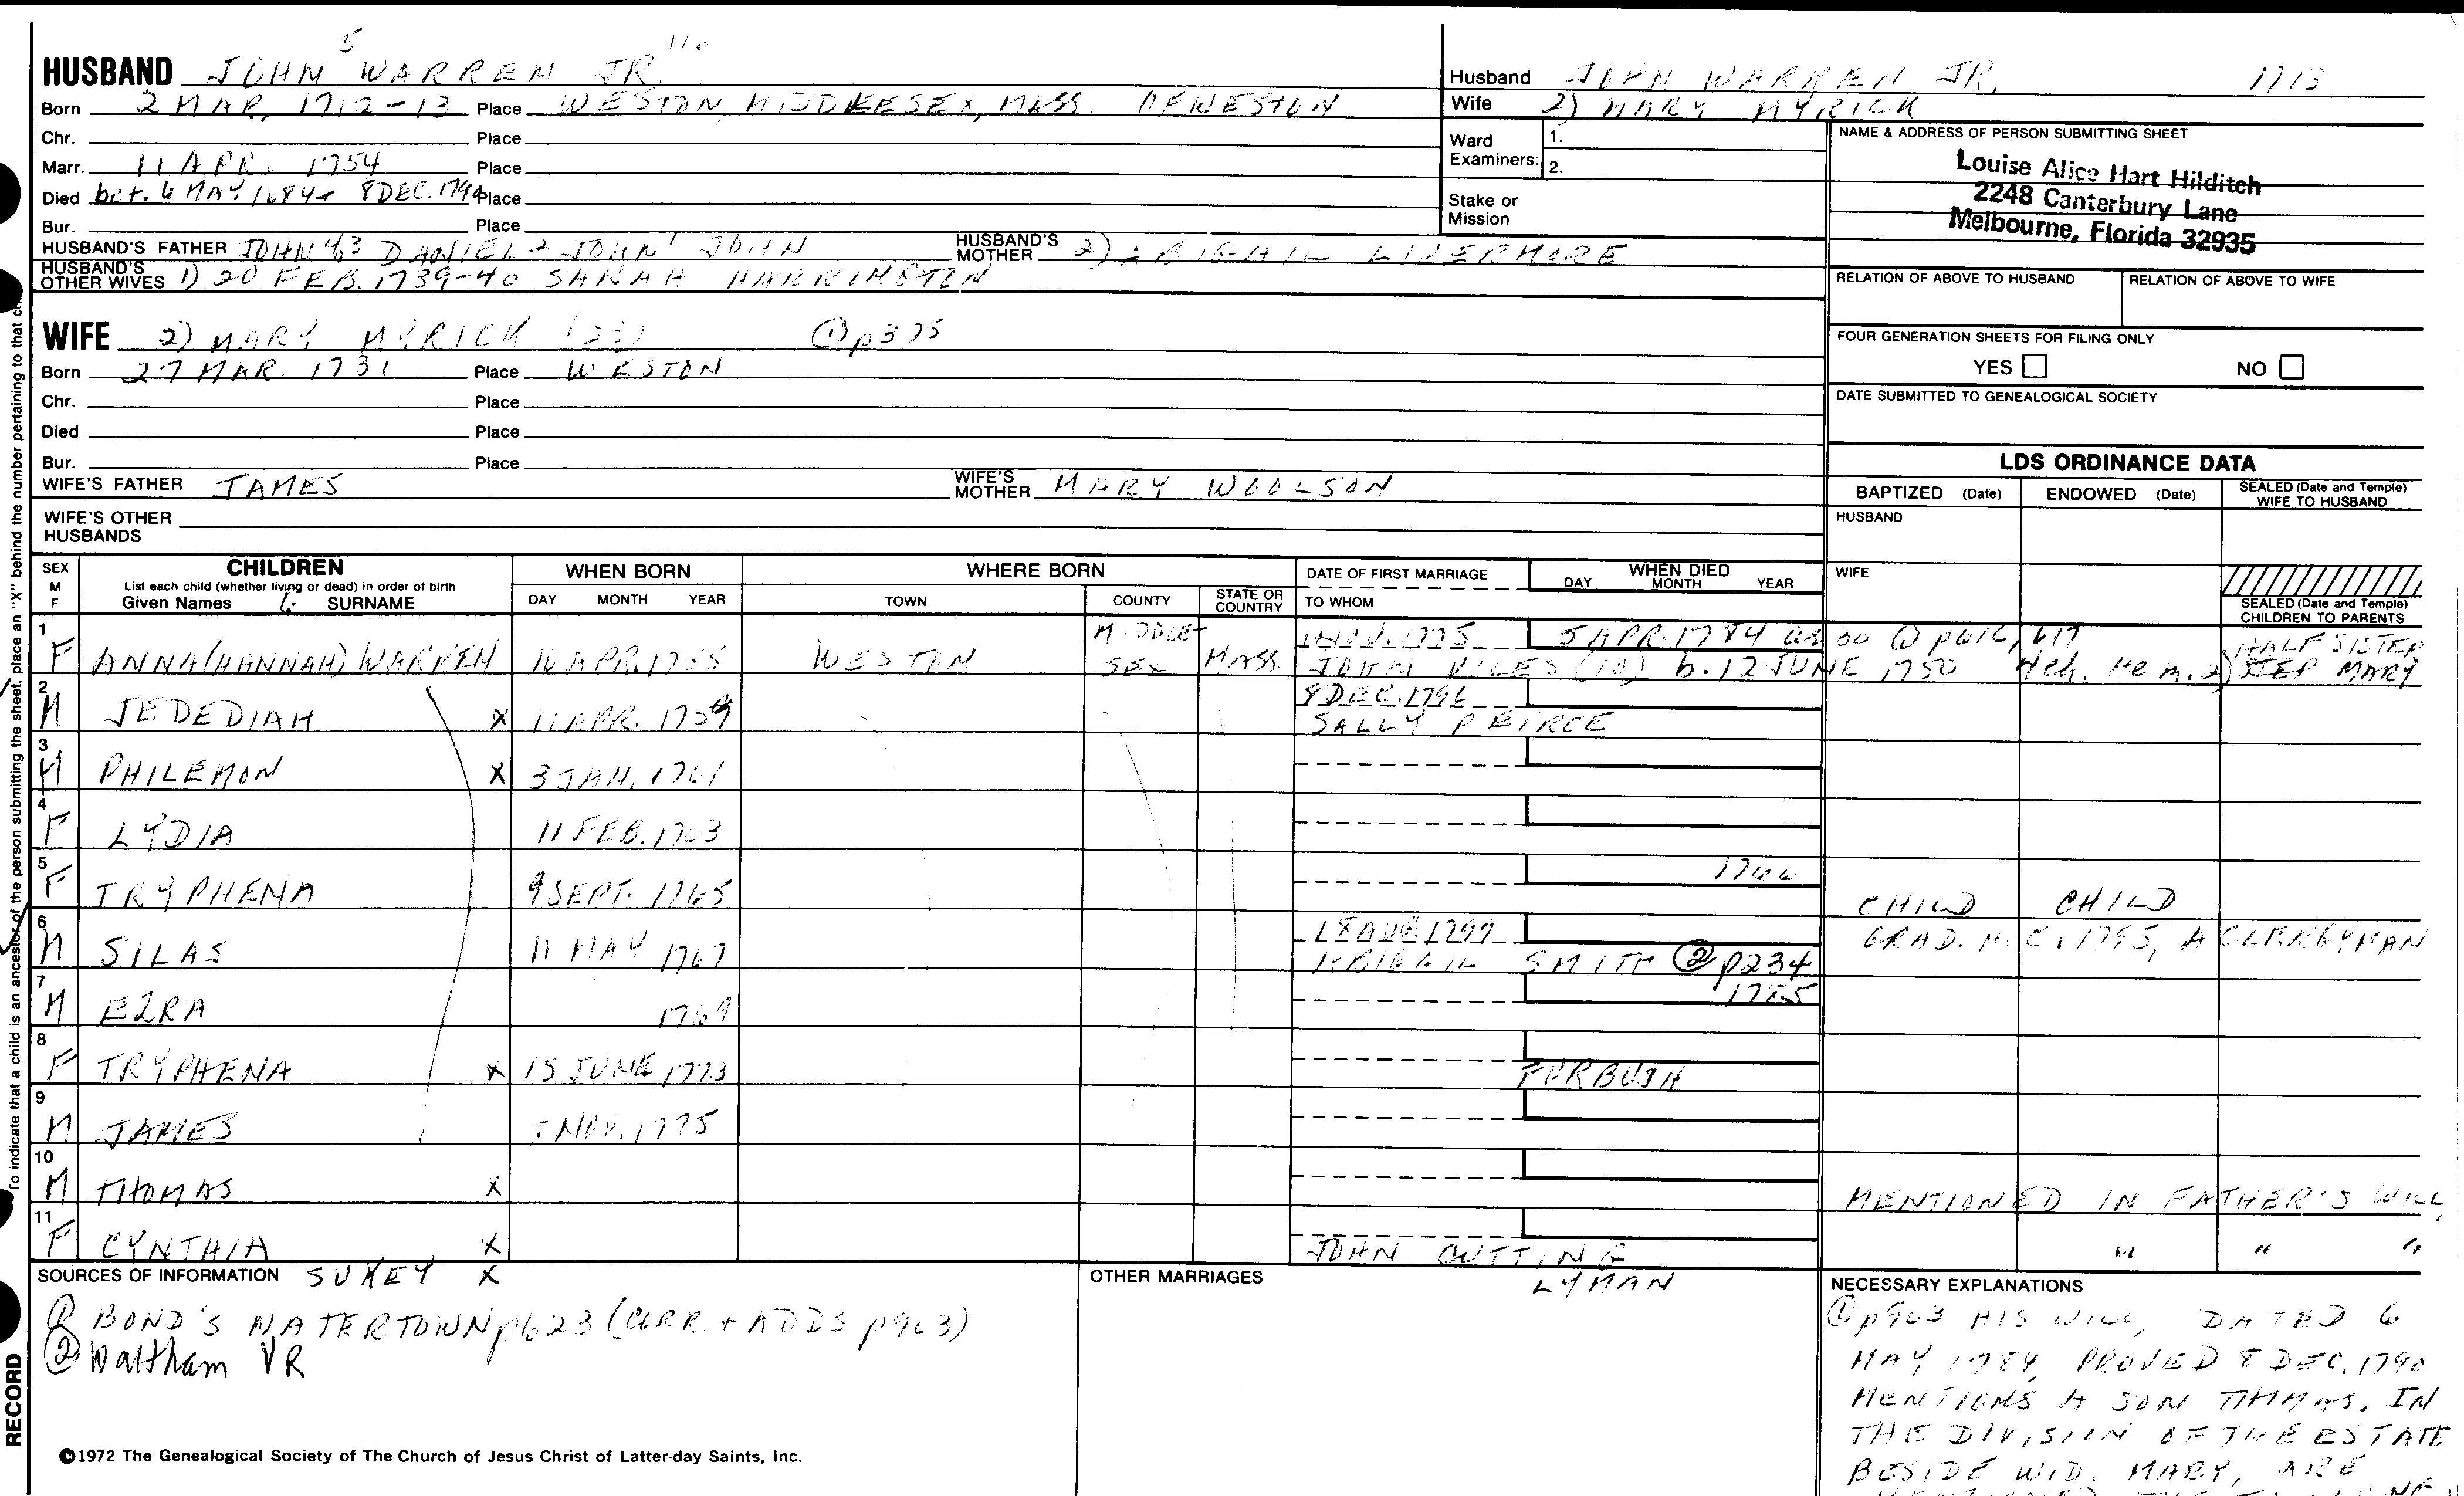 5
HUSBAND JOHN WARREN JR. 110
Born 2 MAR, 1712-13 Place WESTON, MIDDLESEX, MASS. OF WESTON
Chr. Place
Marr. 11 APR. 1754 Place
Died bet. 6 MAY 1684 + 8 DEC. 1790 Place
Bur. Place
HUSBAND'S FATHER JOHN 4, 3 DANIEL 2 JOHN 1 JOHN HUSBAND'S MOTHER 2) ABIGAIL LIVERMORE
HUSBAND'S OTHER WIVES 1) 20 FEB. 1739-40 SARAH HARRINGTON
WIFE 2) MARY MYRICK (23) ① p375
Born 27 MAR. 1731 Place WESTON
Chr. Place
Died Place
Bur. Place
WIFE'S FATHER JAMES WIFE'S MOTHER MARY WOOLSON
WIFE'S OTHER HUSBANDS
Husband JOHN WARREN JR. 1713
Wife 2) MARY MYRICK
Ward Examiners: 1.
2.
Stake or Mission
NAME & ADDRESS OF PERSON SUBMITTING SHEET
Louise Alice Hart Hilditch
2248 Canterbury Lane
Melbourne, Florida 32935
RELATION OF ABOVE TO HUSBAND RELATION OF ABOVE TO WIFE
FOUR GENERATION SHEETS FOR FILING ONLY
YES NO
DATE SUBMITTED TO GENEALOGICAL SOCIETY
LDS ORDINANCE DATA
BAPTIZED (Date) ENDOWED (Date) SEALED (Date and Temple) WIFE TO HUSBAND
HUSBAND
WIFE
SEALED (Date and Temple) CHILDREN TO PARENTS
SEX M F CHILDREN List each child (whether living or dead) in order of birth Given Names 6. SURNAME WHEN BORN DAY MONTH YEAR WHERE BORN TOWN COUNTY STATE OR COUNTRY DATE OF FIRST MARRIAGE TO WHOM WHEN DIED DAY MONTH YEAR
1 F ANNA (HANNAH) WARREN 10 APR. 1755 WESTON MIDDLE-SEX MASS NOV. 1775 5 APR. 1784 ae 30 ① p616, 617 HALF SISTER
JOHN VILES (10) b. 12 JUNE 1750 He m. 2) STEP MARY
2 M JEDEDIAH X 11 APR. 1759 8 DEC. 1796
SALLY PEIRCE
3 M PHILEMON X 3 JAN. 1761
4 F LYDIA 11 FEB. 1763
5 F TRYPHENA 9 SEPT. 1765 1766 CHILD CHILD
6 M SILAS 11 MAY 1767 18 AUG 1799 GRAD. H. C. 1795, A CLERGYMAN
ABIGAIL SMITH ② p234
7 M EZRA 1769 1785
8 F TRYPHENA X 15 JUNE 1773 FURBUSH
9 M JAMES NOV. 1775
10 M THOMAS X MENTIONED IN FATHER'S WILL
11 F CYNTHIA X JOHN CUTTING " " "
SUKEY X LYMAN
SOURCES OF INFORMATION
① BOND'S WATERTOWN p623 (CORR. + ADDS p963)
② Waltham VR
OTHER MARRIAGES
NECESSARY EXPLANATIONS
① p963 HIS WILL, DATED 6
MAY 1784, PROVED 8 DEC. 1790
MENTIONS A SON THOMAS. IN
THE DIVISION OF THE ESTATE
BESIDE WID. MARY, ARE
©1972 The Genealogical Society of The Church of Jesus Christ of Latter-day Saints, Inc.
To indicate that a child is an ancestor of the person submitting the sheet, place an "X" behind the number pertaining to that
RECORD